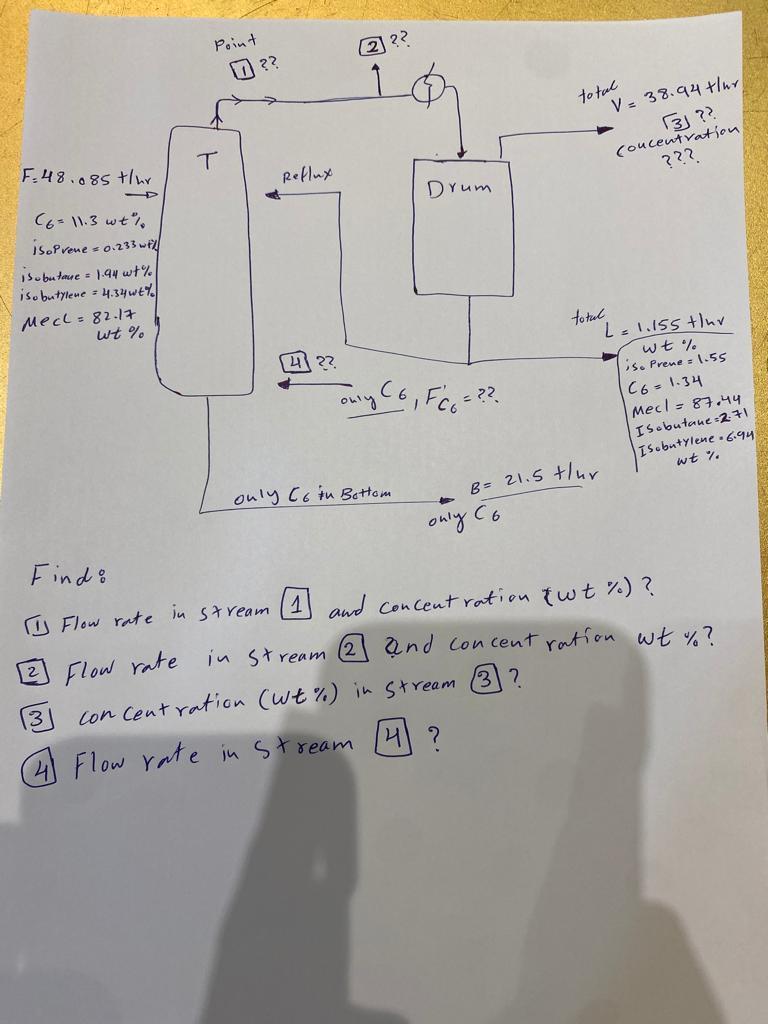 Point
1 ??
2 ??
total
V = 38.94 t/hr
3 ??
concentration
???
F=48.085 t/hr
C6= 11.3 wt%
isoPrene = 0.233 wt%
isobutane = 1.94 wt%
isobutylene = 4.34 wt%
Mecl = 82.17
wt %
T
Reflux
Drum
total
L = 1.155 t/hr
wt %
isoPrene = 1.55
C6 = 1.34
Mecl = 87.44
Isobutane = 2.71
Isobutylene = 6.94
wt %
4 ??
only C6, F'C6 = ??
only C6 in Bottom
B= 21.5 t/hr
only C6
Find:
1 Flow rate in stream 1 and concentration (wt %) ?
2 Flow rate in stream 2 and concentration wt %?
3 concentration (wt%) in stream 3 ?
4 Flow rate in stream 4 ?